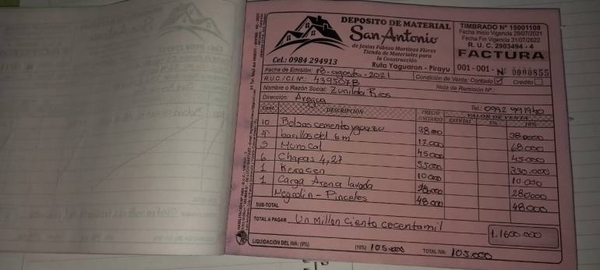 DEPOSITO DE MATERIAL
San Antonio
de Justas Fabian Martinez Flores
Tienda de Materiales para
la Construcción
Cel.: 0984 294913
Ruta Yaguaron - Pirayu
TIMBRADO Nº 15001108
Fecha Inicio Vigencia 29/07/2021
Fecha Fin Vigencia 31/07/2022
R. U. C. 2903494 - 4
FACTURA
001 - 001 - Nº 0000855
Fecha de Emisión: 10 - agosto - 2021
Condición de Venta: Contado Crédito
R.U.C./C.I Nº: 4395078
Nota de Remisión Nº
Nombre o Razón Social: Zunilda Rios
Dirección: Aregua
Tel.: 0972
CANT. DESCRIPCIÓN PRECIO UNITARIO VALOR DE VENTA
EXENTAS 5% 10%
10 Bolsas cemento 38.000 380.000
4 barillas del 6 m 17.000 68.000
3 Muro Cal 15.000 45.000
6 Chapas 4,27 55.000 330.000
1 10.000 10.000
1 Carga Arena lavada 280.000
- Pinceles 48.000 48.000
SUB-TOTAL
TOTAL A PAGAR Un Millon Ciento cecenta mil 1.1600.000
LIQUIDACIÓN DEL IVA: (5%) (10%) 105.000 TOTAL IVA: 105.000